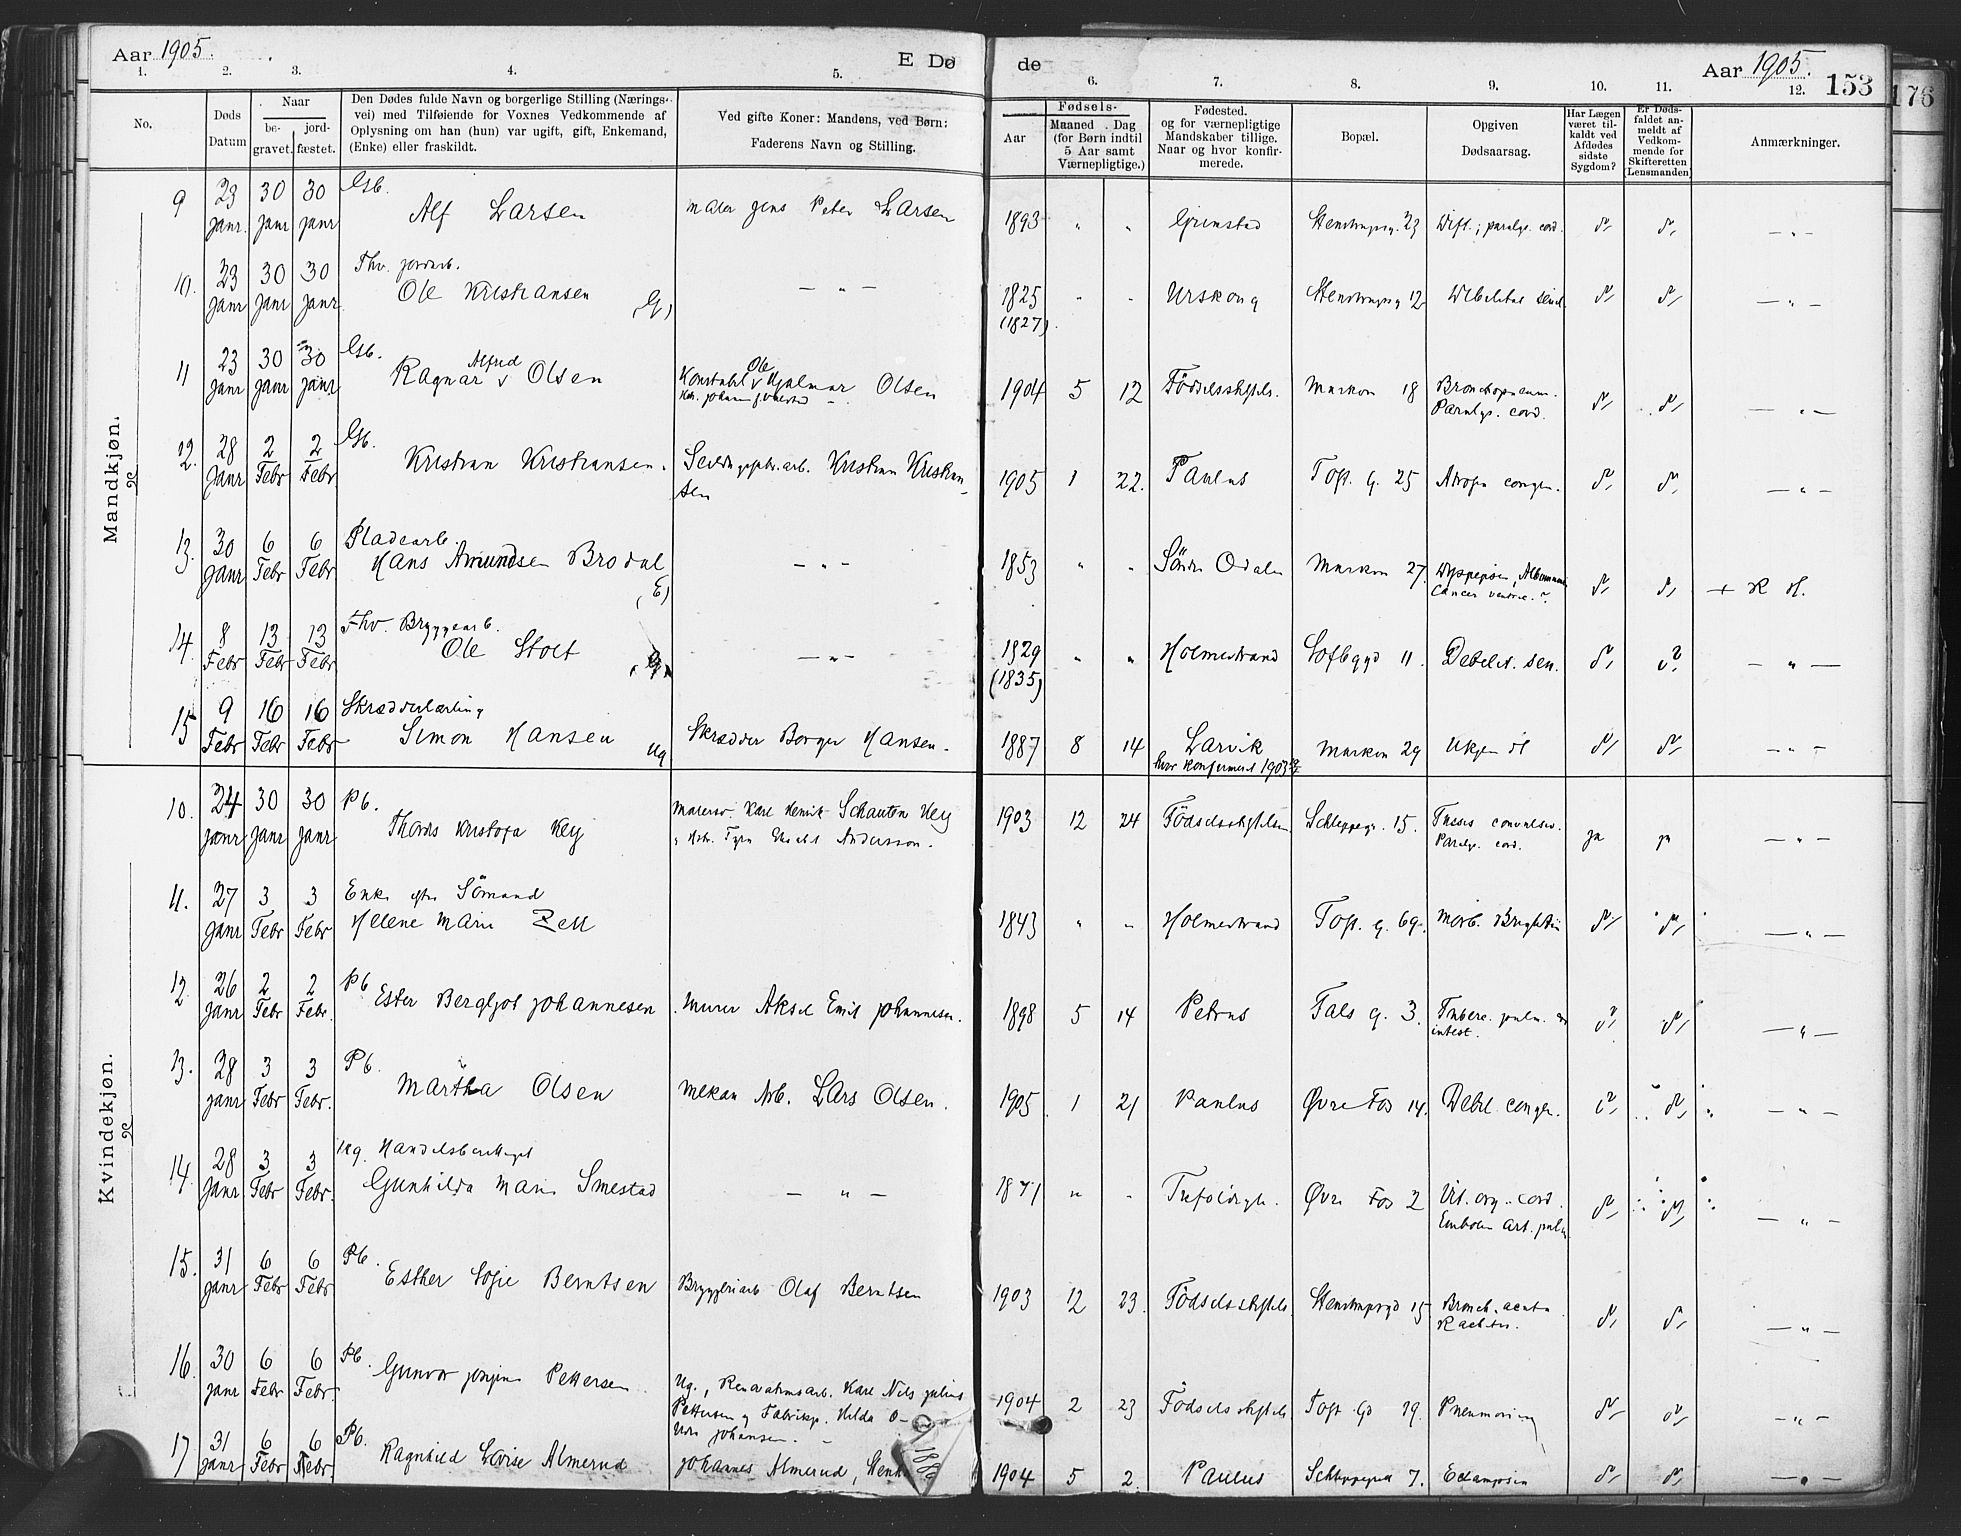 Aar 1905. E Dø de Aar 1905. 153
176
1. 2. 3. 4. 5. 6. 7. 8. 9. 10. 11. 12.
No.
Døds Datum
Naar
be- gravet. jord- fæstet.
Den Dødes fulde Navn og borgerlige Stilling (Nærings-
vei) med Tilføiende for Voxnes Vedkommende af
Oplysning om han (hun) var ugift, gift, Enkemand,
(Enke) eller fraskildt.
Ved gifte Koner: Mandens, ved Børn:
Faderens Navn og Stilling.
Fødsels-
Aar
Maaned Dag
(for Børn indtil
5 Aar samt
Værnepligtige.)
Fødested.
og for værnepligtige
Mandskaber tillige.
Naar og hvor konfir-
merede.
Bopæl.
Opgiven
Dødsaarsag.
Har Lægen
været til-
kaldt ved
Afdødes
sidste
Sygdom?
Er Døds-
faldet an-
meldt af
Vedkom-
mende for
Skifteretten
(Lensmanden)
Anmærkninger.
Mandkjøn.
9 23 Janr. 30 Janr 30 Janr Gb. Alf Larsen Maler Jens Peter Larsen 1893 " " Grimstad Stenstrupsg. 23 Dift.; paralys. cord. — " —
10. 23 Janr 30 Janr 30 Janr Fhv. jordarb. Ole Kristiansen (G) — " — 1825 (1827) " " Urskoug Stenstrupsg 12 — " —
11 23 Janr 30 Janr 30 Janr Gb. Ragnar Alfred Olsen Konstabel Ole Hjalmar Olsen 1904 5 12 Födselsstiftels. Markvn 18 Bronchopneum. Paralys. cord. — " —
12. 28 Janr 2 Febr 2 Febr Gb. Kristian Kristiansen. Kristian Kristiansen 1905 1 22. Paulus Toft. g. 25 Atrofia congen. — " —
13. 30 Janr 6 Febr 6 Febr Pladearb. Hans Amundsen Brodal (E) — " — 1853 " " Söndre Odalen Markvn 27. Dyspepsia, Cancer ventric. ? + R H.
14. 8 Febr 13 Febr 13 Febr Fhv. Bryggearb. Ole Stolt (G) — " — 1829 (1835) " " Holmestrand Sofbggd 11. Debilit. sen. — " —
15 9 Febr 16 Febr 16 Febr Skrædderlærling Simon Hansen ug Skrædder Borger Hansen. 1887 8 14 Larvik hvor konfirmeret 1903 Markvn 29 Ukjendt — " —
Kvindekjøn.
10. 24 Janr 30 Janr 30 Janr Pb. Thordis Kristofa Key Karl Henrik Schauten Key Andersson. 1903 12 24 Födselsstiftelsen Schleppegr. 15. Tussis convulsiv. Paralys. cord. ja ja — " —
11. 27 Janr 3 Febr 3 Febr Enke efter Sömand Helene Marie Zell 1843 " " Holmestrand Toft. g. 69. Morb. Brightii — " —
12 26 Janr 2 Febr 2 Febr Pb Ester Bergljot Johannesen Murer Aksel Emil Johannesen. 1898 5 14 Petrus Fals g. 3. Tuberc. pulm. et intest. — " —
13. 28 Janr 3 Febr 3 Febr. Pb. Martha Olsen Mekan Arb. Lars Olsen. 1905 1 21 Paulus Øvre Fos 14. Debil. congen. — " —
14 28 Janr 3 Febr 3 Febr. Ug. Handelsberettiget Gunhilda Marie Smestad — " — 1871 " " Trefoldigh. Øvre Fos 2 Vit. org. cord. Emboli art. pulm — " —
15. 31 Janr 6 Febr 6 Febr Pb. Esther Sofie Berntsen Bryggeriarb Olaf Berntsen 1903 12 23. Födselsstiftels. Stenstrupsgd 15 Bronch. acuta Rachitis. — " —
16. 30 Janr 6 Febr 6 Febr. Pb. Gunvor Petersen Ug., Renovationsarb. Karl Nils Julius Pettersen og Fabrikp. Hilda Johansen. 1904 2 23 Födselsstiftels. Toft gd 19. Pneumoni — " —
17 31 Janr 6 Febr 6 Febr. Pb. Ragnhild Lovise Almerud Johannes Almerud, 1904 5 2. Paulus Schleppegrel 7. Eclampsia — " —